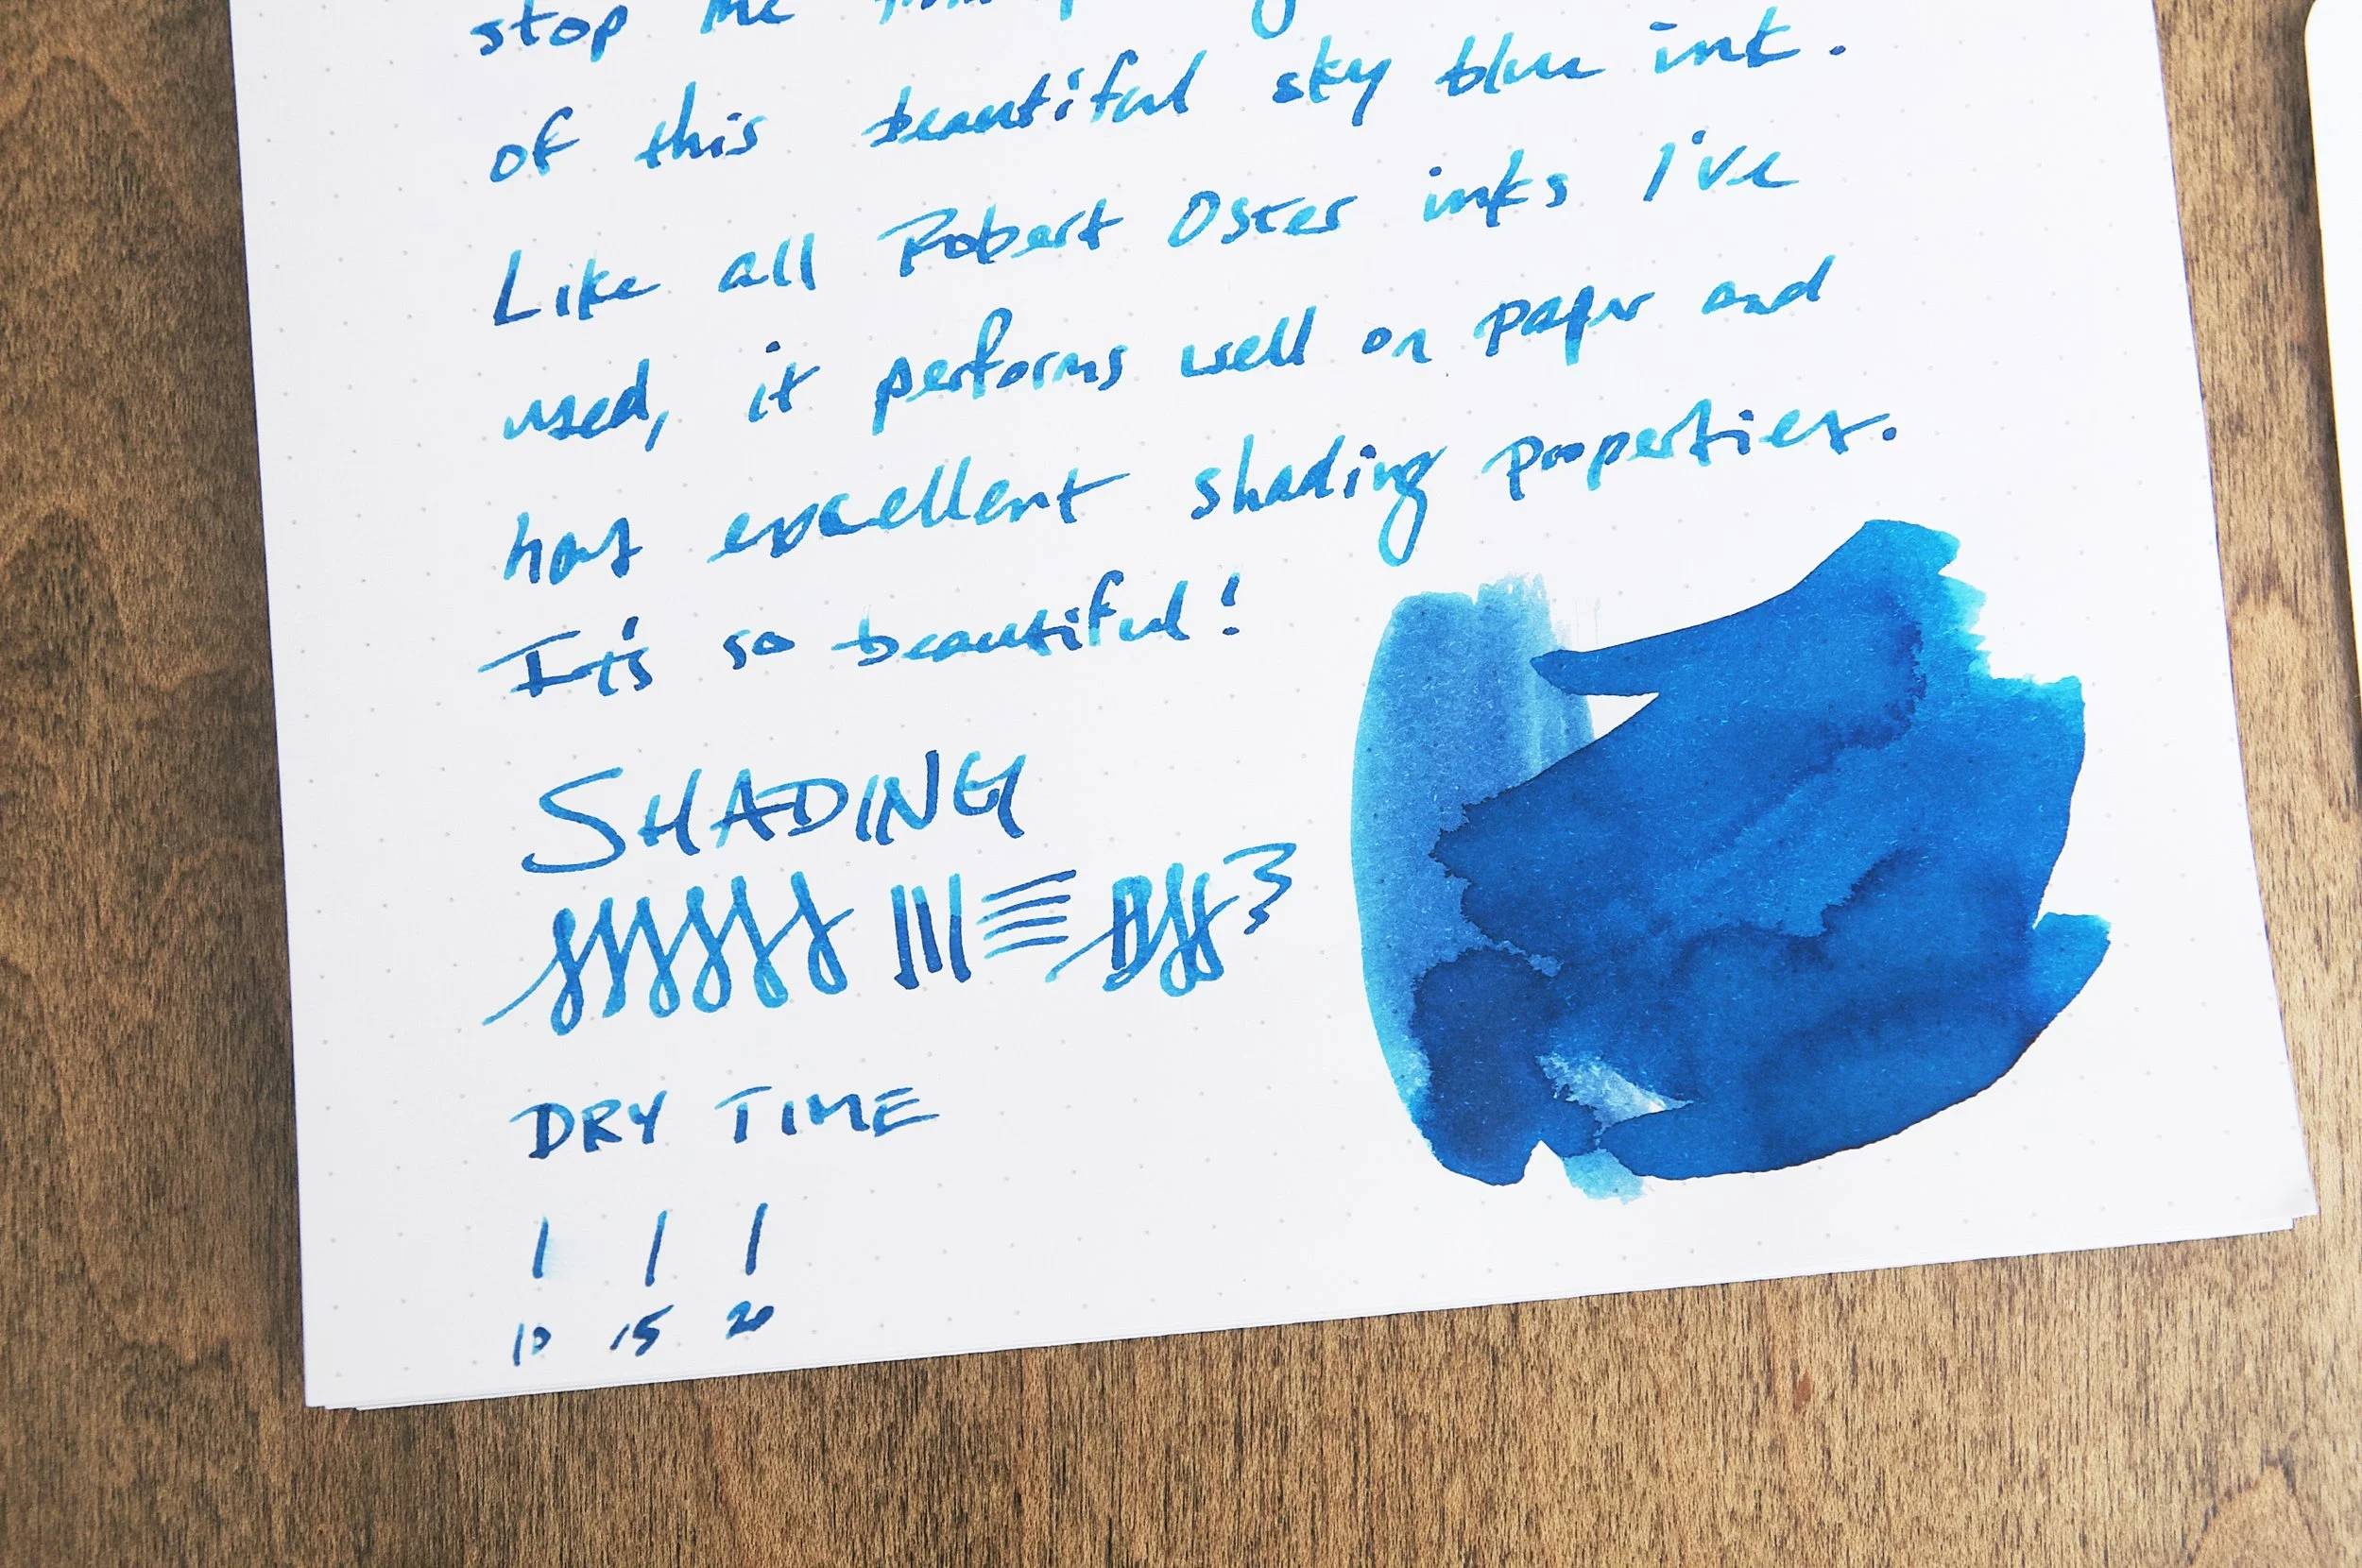 stop me
of this beautiful sky blue ink.
Like all Robert Oster inks I've
used, it performs well on paper and
has excellent shading properties.
It's so beautiful!
SHADING
DRY TIME
10 15 20